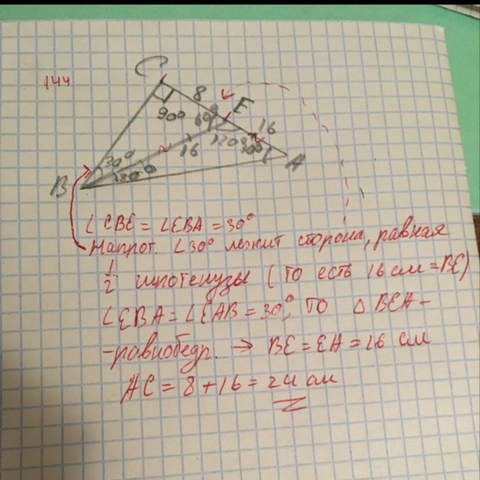 144
C
8
E
90°
60°
16
120°
30°
A
16
30°
30°
B
∠CBE = ∠EBA = 30°
Напрот. ∠30° лежит сторона, равная
1/2 гипотенузы (то есть 16 см = BE)
∠EBA = ∠EAB = 30°, то △ BEA -
-равнобедр. → BE = EA = 16 см
AC = 8 + 16 = 24 см